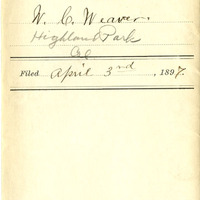 W. C. Weaver.
Highland Park
Cal
Filed April 3rd, 1897.